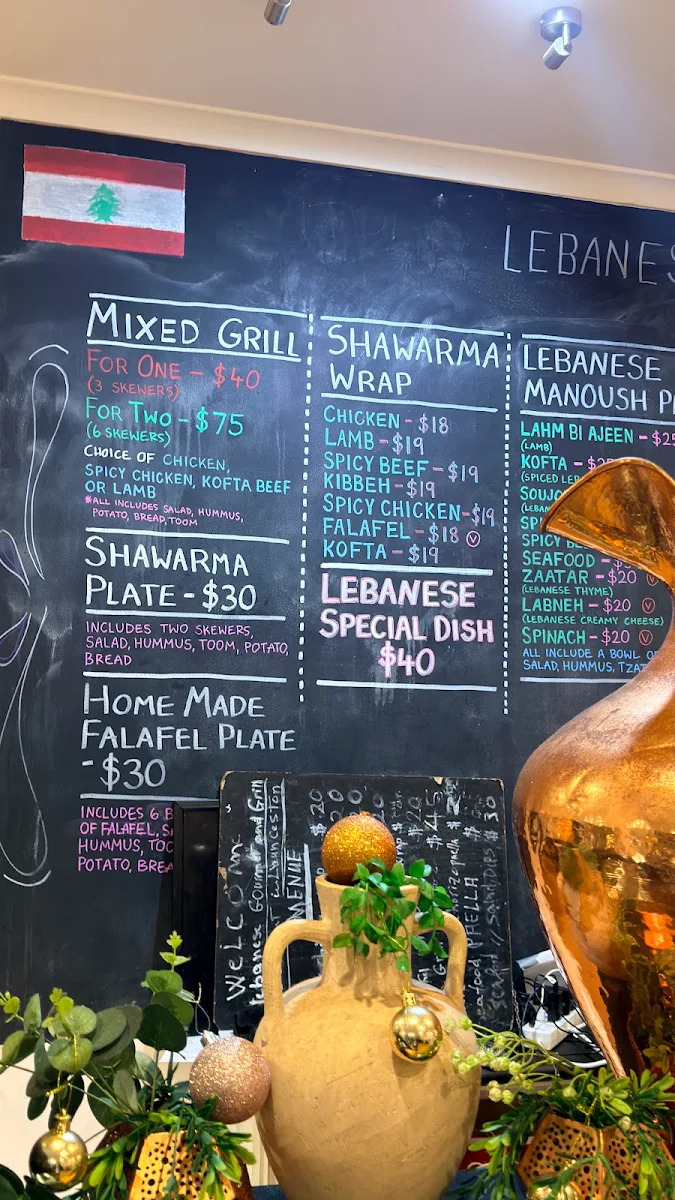 LEBANES
MIXED GRILL
FOR ONE - $40
(3 SKEWERS)
FOR TWO - $75
(6 SKEWERS)
CHOICE OF CHICKEN,
SPICY CHICKEN, KOFTA BEEF
OR LAMB
*ALL INCLUDES SALAD, HUMMUS,
POTATO, BREAD, TOOM
SHAWARMA
PLATE - $30
INCLUDES TWO SKEWERS,
SALAD, HUMMUS, TOOM, POTATO,
BREAD
HOME MADE
FALAFEL PLATE
- $30
INCLUDES 6 B
OF FALAFEL, SA
HUMMUS, TOO
POTATO, BREA
SHAWARMA
WRAP
CHICKEN - $18
LAMB - $19
SPICY BEEF - $19
KIBBEH - $19
SPICY CHICKEN - $19
FALAFEL - $18 V
KOFTA - $19
LEBANESE
SPECIAL DISH
$40
LEBANESE
MANOUSH P
LAHM BI AJEEN - $25
(LAMB)
KOFTA -
(SPICED
SOUJO
SPICY
SEAFOOD -
ZAATAR - $20 V
(LEBANESE THYME)
LABNEH - $20 V
(LEBANESE CREAMY CHEESE)
SPINACH - $20 V
ALL INCLUDE A BOWL O
SALAD, HUMMUS, TZAT
WELCOM
Lebanese Gourmet and Grill
Launceston
MENUE
$20
PAELLA
$30